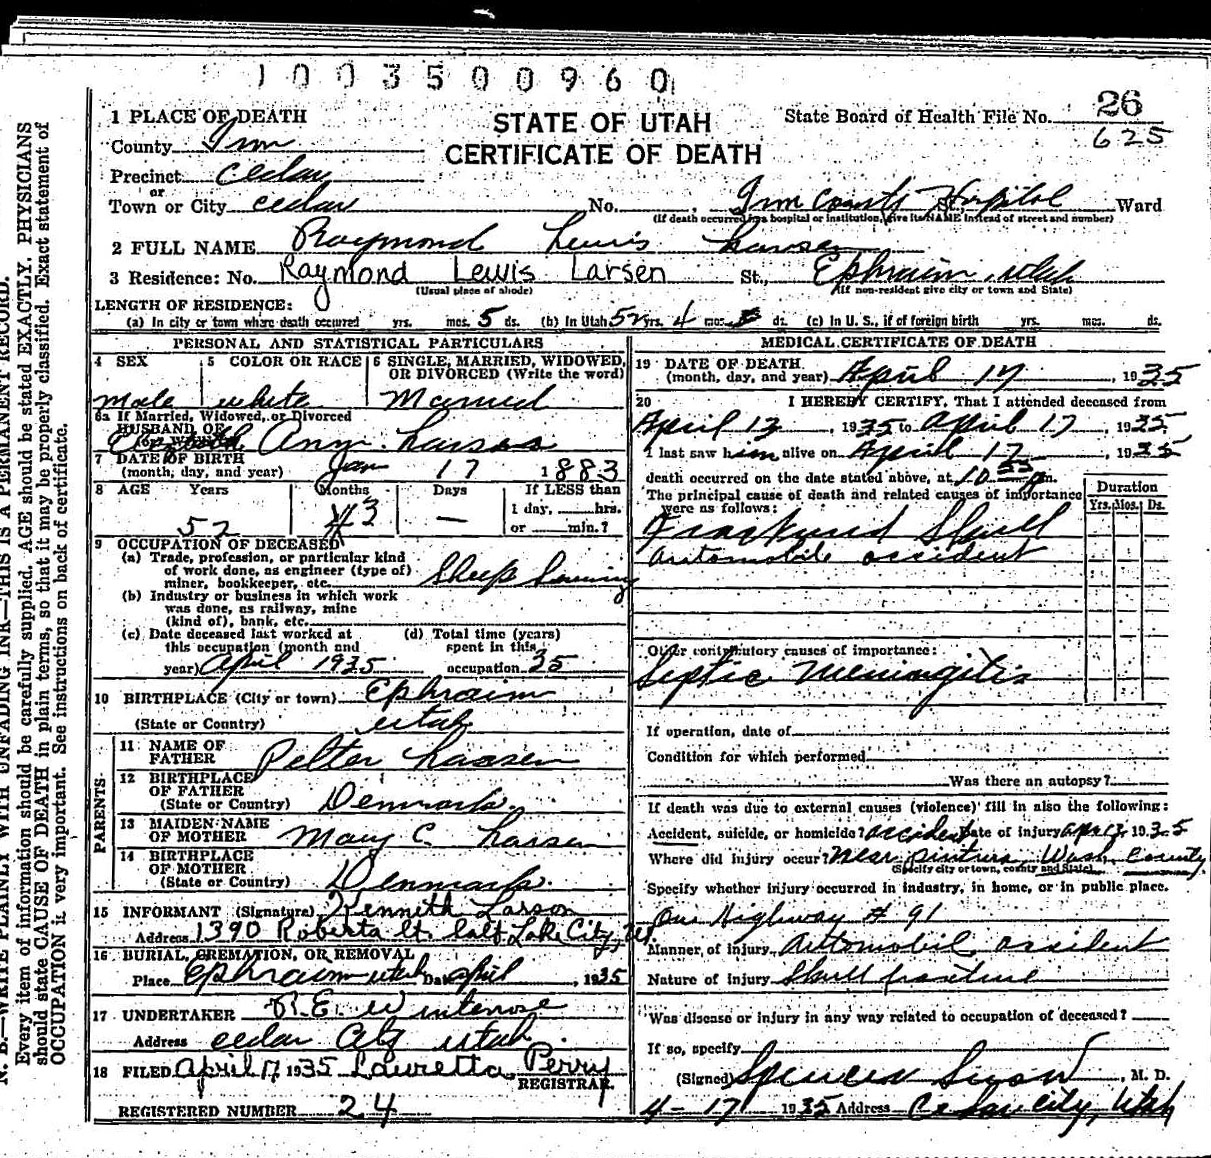 1003500960
1 PLACE OF DEATH
STATE OF UTAH
CERTIFICATE OF DEATH
State Board of Health File No. 26
625
County Irn
Precinct Cedar
or
Town or City Cedar No. Irn County Hospital St., Ward
(If death occurred in a hospital or institution, give its NAME instead of street and number)
2 FULL NAME Raymond Lewis Larsen
3 Residence: No. Raymond Lewis Larsen St., Ephraim, Utah
(Usual place of abode) (If non-resident give city or town and State)
LENGTH OF RESIDENCE:
(a) In city or town where death occurred yrs. mos. 5 ds. (b) In Utah 52 yrs. 4 mos. ds. (c) In U. S., if of foreign birth yrs. mos. ds.
PERSONAL AND STATISTICAL PARTICULARS
4 SEX 5 COLOR OR RACE 6 SINGLE, MARRIED, WIDOWED, OR DIVORCED (Write the word)
male white Married
6a If Married, Widowed, or Divorced
HUSBAND OF
(or) WIFE OF Ann Larsen
7 DATE OF BIRTH
(month, day, and year) Jan 17 1883
8 AGE Years Months Days If LESS than
1 day, hrs.
52 3 — or min.?
9 OCCUPATION OF DECEASED
(a) Trade, profession, or particular kind
of work done, as engineer (type of)
miner, bookkeeper, etc. Sheep
(b) Industry or business in which work
was done, as railway, mine
(kind of), bank, etc.
(c) Date deceased last worked at (d) Total time (years)
this occupation (month and spent in this
year) April 1935 occupation 35
10 BIRTHPLACE (City or town) Ephraim
(State or Country) Utah
PARENTS
11 NAME OF
FATHER Petter Larsen
12 BIRTHPLACE
OF FATHER
(State or Country) Denmark.
13 MAIDEN NAME
OF MOTHER Mary C. Larsen
14 BIRTHPLACE
OF MOTHER
(State or Country) Denmark.
15 INFORMANT (Signature) Kenneth Larson
Address 1390 Roberta St. Salt Lake City, Ut
16 BURIAL, CREMATION, OR REMOVAL
Place Ephraim Utah Date April, 1935
17 UNDERTAKER R.E. Winterose
Address Cedar City Utah.
18 FILED April 17, 1935 Lauretta Perry
REGISTRAR.
REGISTERED NUMBER 24
MEDICAL CERTIFICATE OF DEATH
19 DATE OF DEATH
(month, day, and year) April 17, 1935
20 I HEREBY CERTIFY, That I attended deceased from
April 13, 1935 to April 17, 1935
I last saw him alive on April 17, 1935
death occurred on the date stated above, at 10 55 m.
The principal cause of death and related causes of importance
were as follows:
Duration
Yrs. Mos. Ds.
Fractured Skull
automobile accident
Other contributory causes of importance:
Septic Meningitis
If operation, date of
Condition for which performed
Was there an autopsy?
If death was due to external causes (violence) fill in also the following:
Accident, suicide, or homicide? accident Date of injury Apr 13, 1935
Where did injury occur? Near pintura, Wash. County
(Specify city or town, county and State)
Specify whether injury occurred in industry, in home, or in public place.
On Highway # 91
Manner of injury Automobil accident
Nature of injury Skull fracture
Was disease or injury in any way related to occupation of deceased?
If so, specify
(Signed) Spencer Snow, M. D.
4-17 1935 Address Cedar City, Utah
N. B.—WRITE PLAINLY WITH UNFADING INK—THIS IS A PERMANENT RECORD.
Every item of information should be carefully supplied. AGE should be stated EXACTLY. PHYSICIANS
should state CAUSE OF DEATH in plain terms, so that it may be properly classified. Exact statement of
OCCUPATION is very important. See instructions on back of certificate.